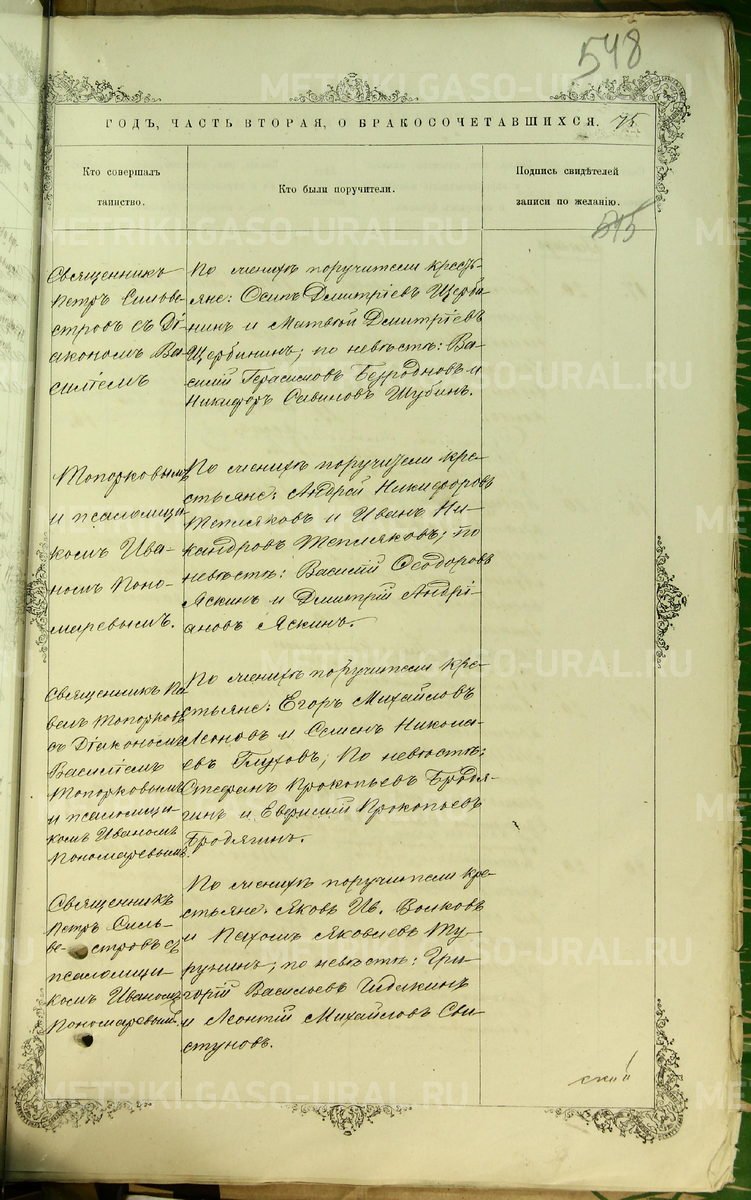 548
ГОДЪ, ЧАСТЬ ВТОРАЯ, О БРАКОСОЧЕТАВШИХСЯ. 75
Кто совершалъ
таинство.
Кто были поручители.
Подпись свидѣтелей
записи по желанію.
515
Священникъ
Петръ Сильве-
стровъ съ Ді-
акономъ Ва-
силіемъ
По женихѣ поручители кресть-
яне: Осипъ Дмитріевъ Щерби-
нинъ и Матвѣй Дмитріевъ
Щербининъ; по невѣстѣ: Ва-
силій Герасимовъ Безродновъ и
Никифоръ Савиновъ Шубинъ.
Топорковымъ
и псаломщи-
комъ Ива-
номъ Поно-
маревымъ.
По женихѣ поручители кре-
стьяне: Андрей Никифоровъ
Тепляковъ и Иванъ Ни-
кандровъ Тепляковъ; по
невѣстѣ: Василій Ѳеодоровъ
Яскинъ и Дмитрій Андрі-
ановъ Яскинъ.
Священникъ Па-
велъ Топорковъ
съ Діакономъ
Василіемъ
Топорковымъ
и псаломщи-
комъ Иваномъ
Пономаревымъ.
По женихѣ поручители кре-
стьяне: Егоръ Михайловъ
Леоновъ и Семенъ Никола-
евъ Глуховъ; По невѣстѣ:
Стефанъ Прокопьевъ Бродя-
гинъ и Евфимій Прокопьевъ
Бродягинъ.
Священникъ
Петръ Силь-
ве-стровъ съ
псаломщи-
комъ Иваномъ
Пономаревымъ.
По женихѣ поручители кре-
стьяне: Яковъ Ив. Волковъ
и Пахомъ Яковлевъ Ту-
рунинъ; по невѣстѣ: Гри-
горій Васильевъ
и Леонтій Михайловъ Сви-
стуновъ.
ской
METRIKI.GASO-URAL.RU